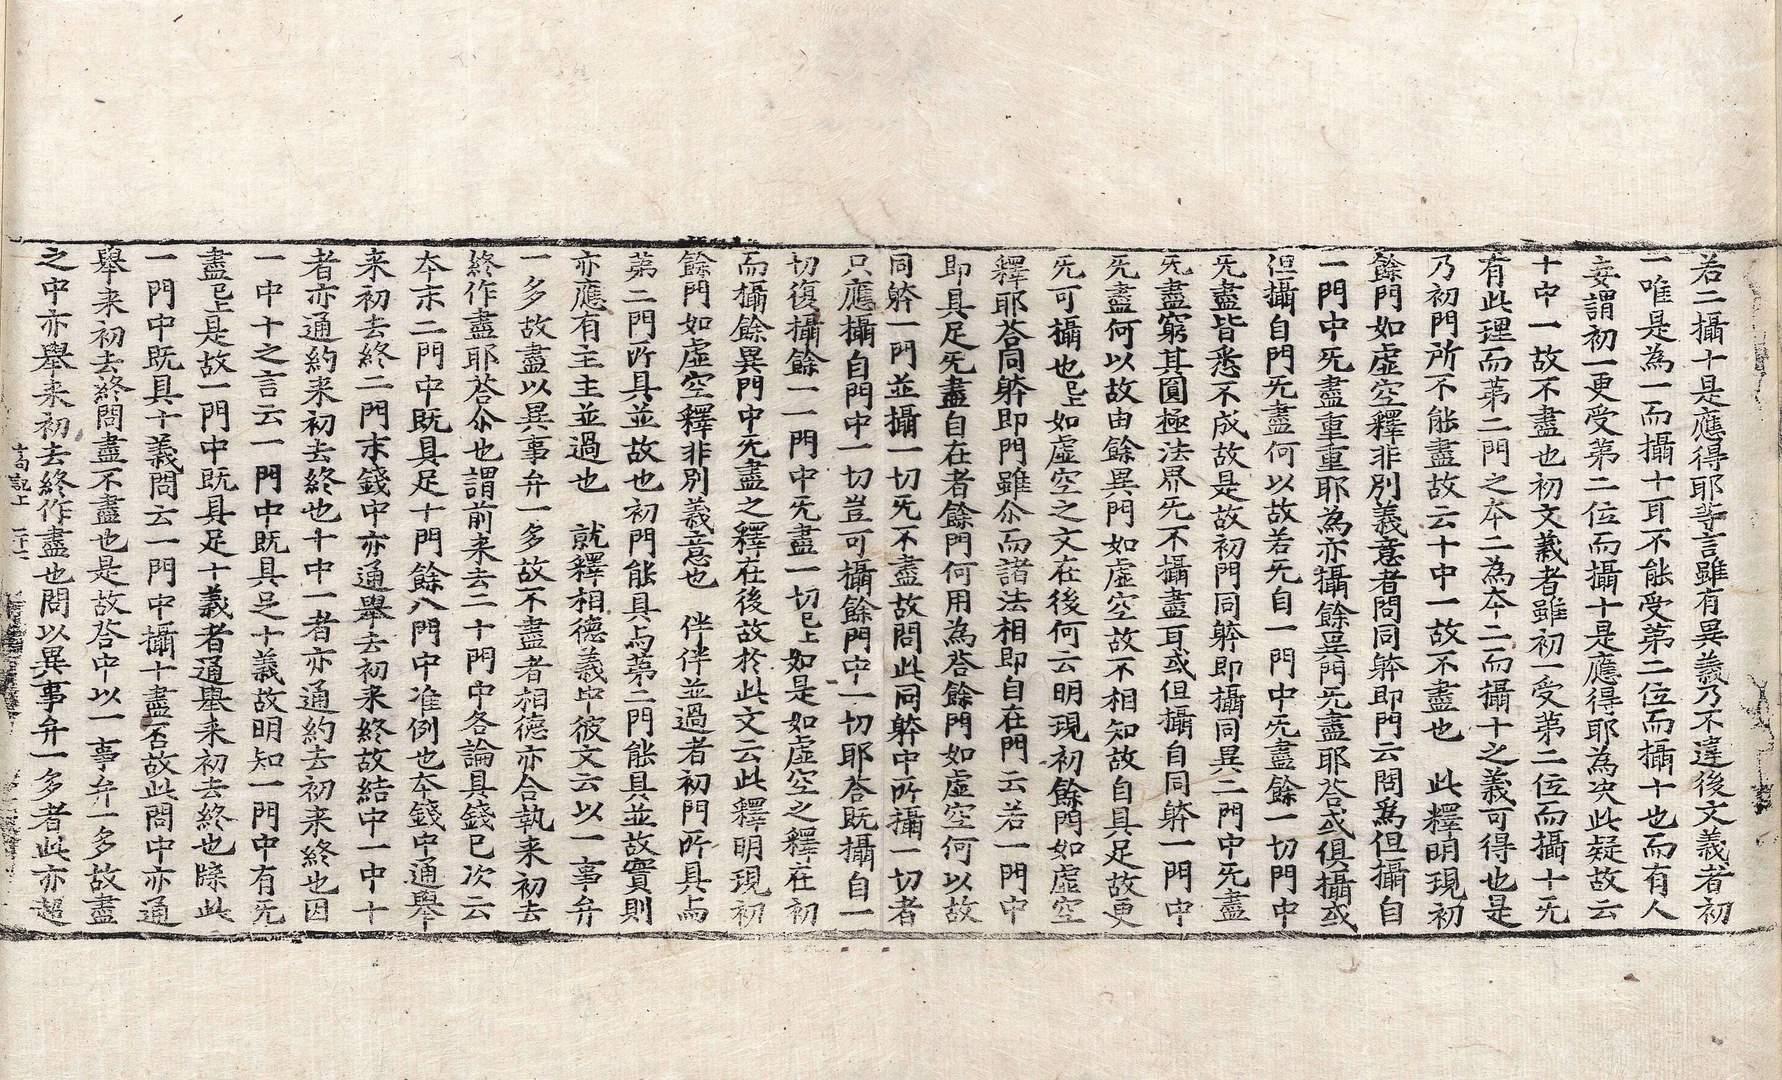 若二攝十是應得耶等言雖有異義乃不違後文義者初
一唯是為一而攝十耳不能受第二位而攝十也而有人
妄謂初一更受第二位而攝十是應得耶為决此疑故云
十中一故不盡也初文義者雖初一受第二位而攝十无
有此理而第二門之夲二為夲二而攝十之義可得也是
乃初門所不能盡故云十中一故不盡也　此釋明現初
餘門如虛空釋非別義意者問同躰即門云問為但攝自
一門中无盡重重耶為亦攝餘異門无盡耶荅或俱攝或
但攝自門无盡何以故若无自一門中无盡餘一切門中
无盡皆悉不成故是故初門同躰即攝同異二門中无盡
无盡窮其圓極法界无不攝盡耳或但攝自同躰一門中
无盡何以故由餘異門如虛空故不相知故自具足故更
无可攝也已上如虛空之文在後何云明現初餘門如虛空
釋耶荅同躰即門雖尒而諸法相即自在門云若一門中
即具足无盡自在者餘門何用為荅餘門如虛空何以故
同躰一門並攝一切无不盡故問此同躰中所攝一切者
只應攝自門中一切豈可攝餘門中一切耶荅既攝自一
切復攝餘一一門中无盡一切已上如是如虛空之釋在初
而攝餘異門中无盡之釋在後故於此文云此釋明現初
餘門如虛空釋非別義意也　伴伴並過者初門所具与
第二門所具並故也初門能具与第二門能具並故實則
亦應有主主並過也　就釋相德義中彼文云以一事弁
一多故盡以異事弁一多故不盡者相德亦合執来初去
終作盡耶荅尒也謂前来去二十門中各論具錢已次云
夲末二門中既具足十門餘八門中准例也夲錢中通舉
来初去終二門末錢中亦通舉去初来終故結中一中十
者亦通約来初去終也十中一者亦通約去初来終也因
一中十之言云一門中既具足十義故明知一門中有无
盡已上是故一門中既具足十義者通舉来初去終也牒此
一門中既具十義問云一門中攝十盡不故此問中亦通
舉来初去終問盡不盡也是故荅中以一事弁一多故盡
之中亦舉来初去終作盡也問以異事弁一多者此亦超